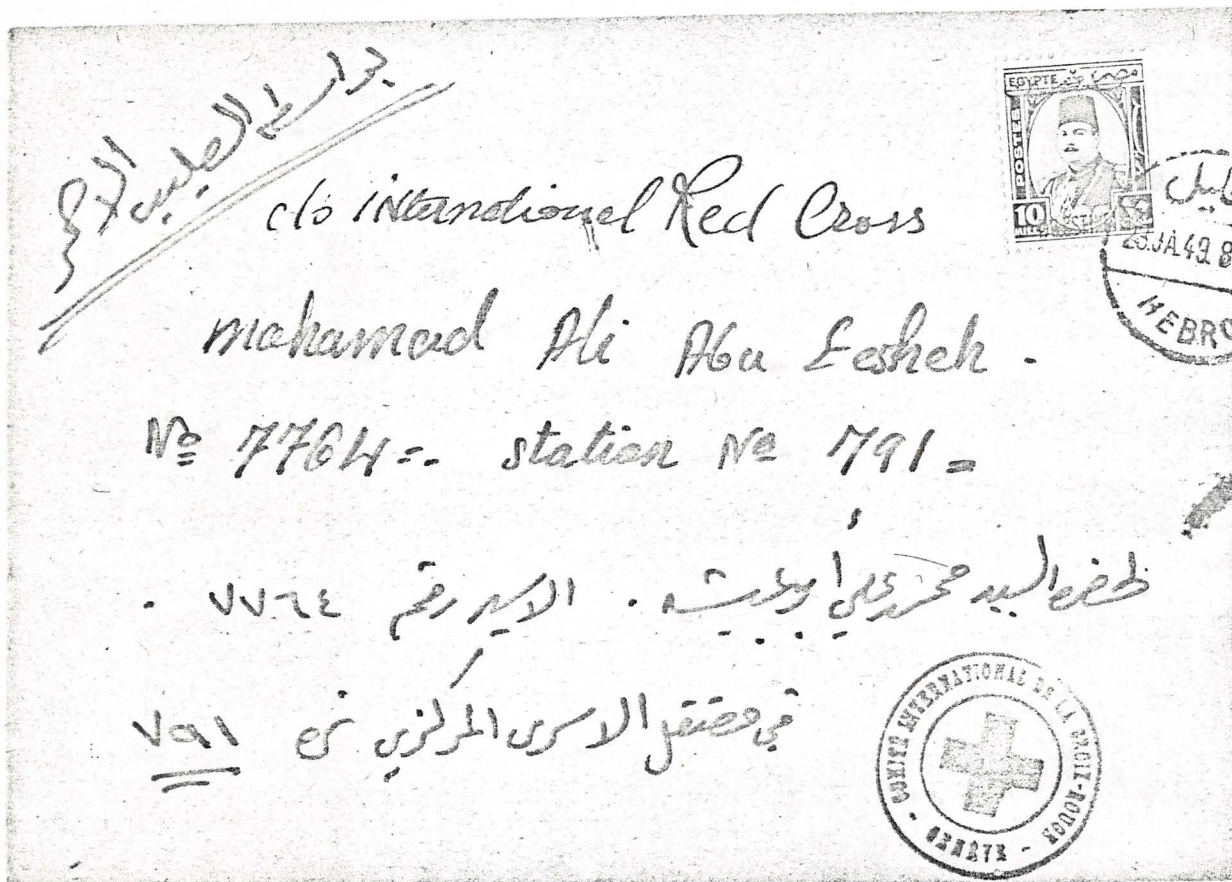 بواسطة الصليب الاحمر
c/o international Red Cross
mohamad Ali Abu Eesheh .
Nº 7764=. station Nº 791=
لحضرة السيد محمد علي أبو عيشه . الاسير رقم ٧٧٦٤ .
في معتقل الاسرى المركزي نمرة ٧٩١
EGYPTE
POSTES
10
JA.49
HEBRO
COMITÉ INTERNATIONAL DE LA CROIX-ROUGE - GENÈVE -